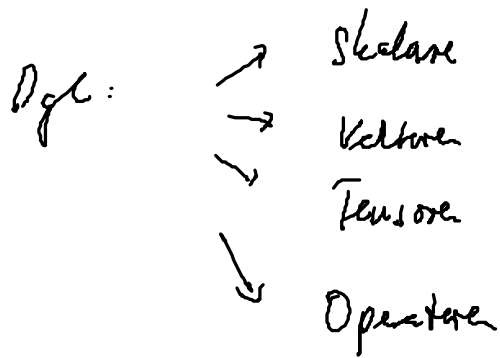 Skalare
Dgl:
Vektoren
Tensoren
Operatoren